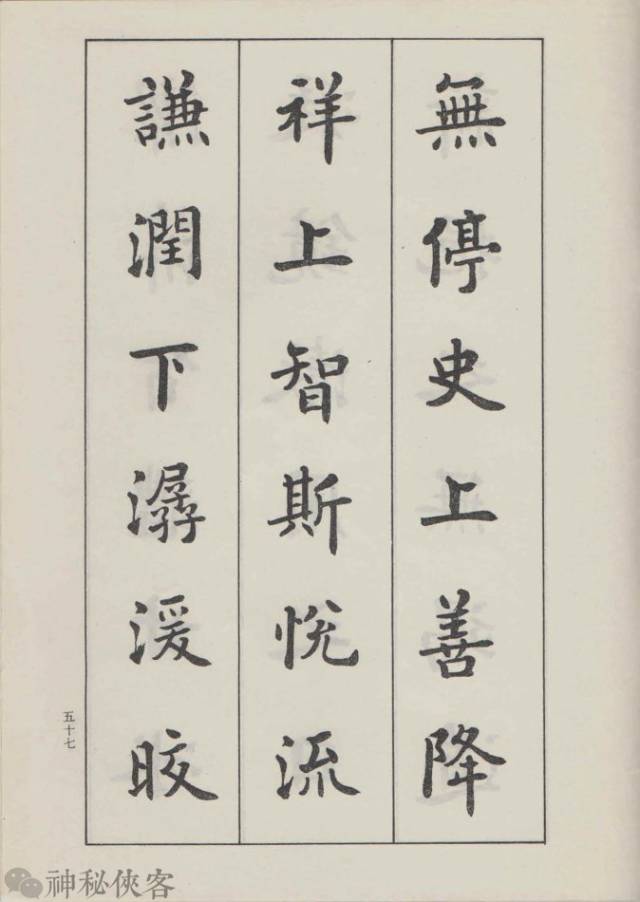 無停史上善降
祥上智斯悅流
謙潤下潺湲皎
五十七
神秘俠客